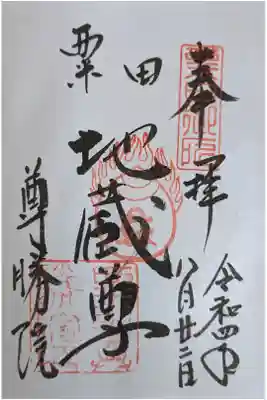 奉拝
令和四年
八月廿二日
粟田
地蔵尊
尊勝院